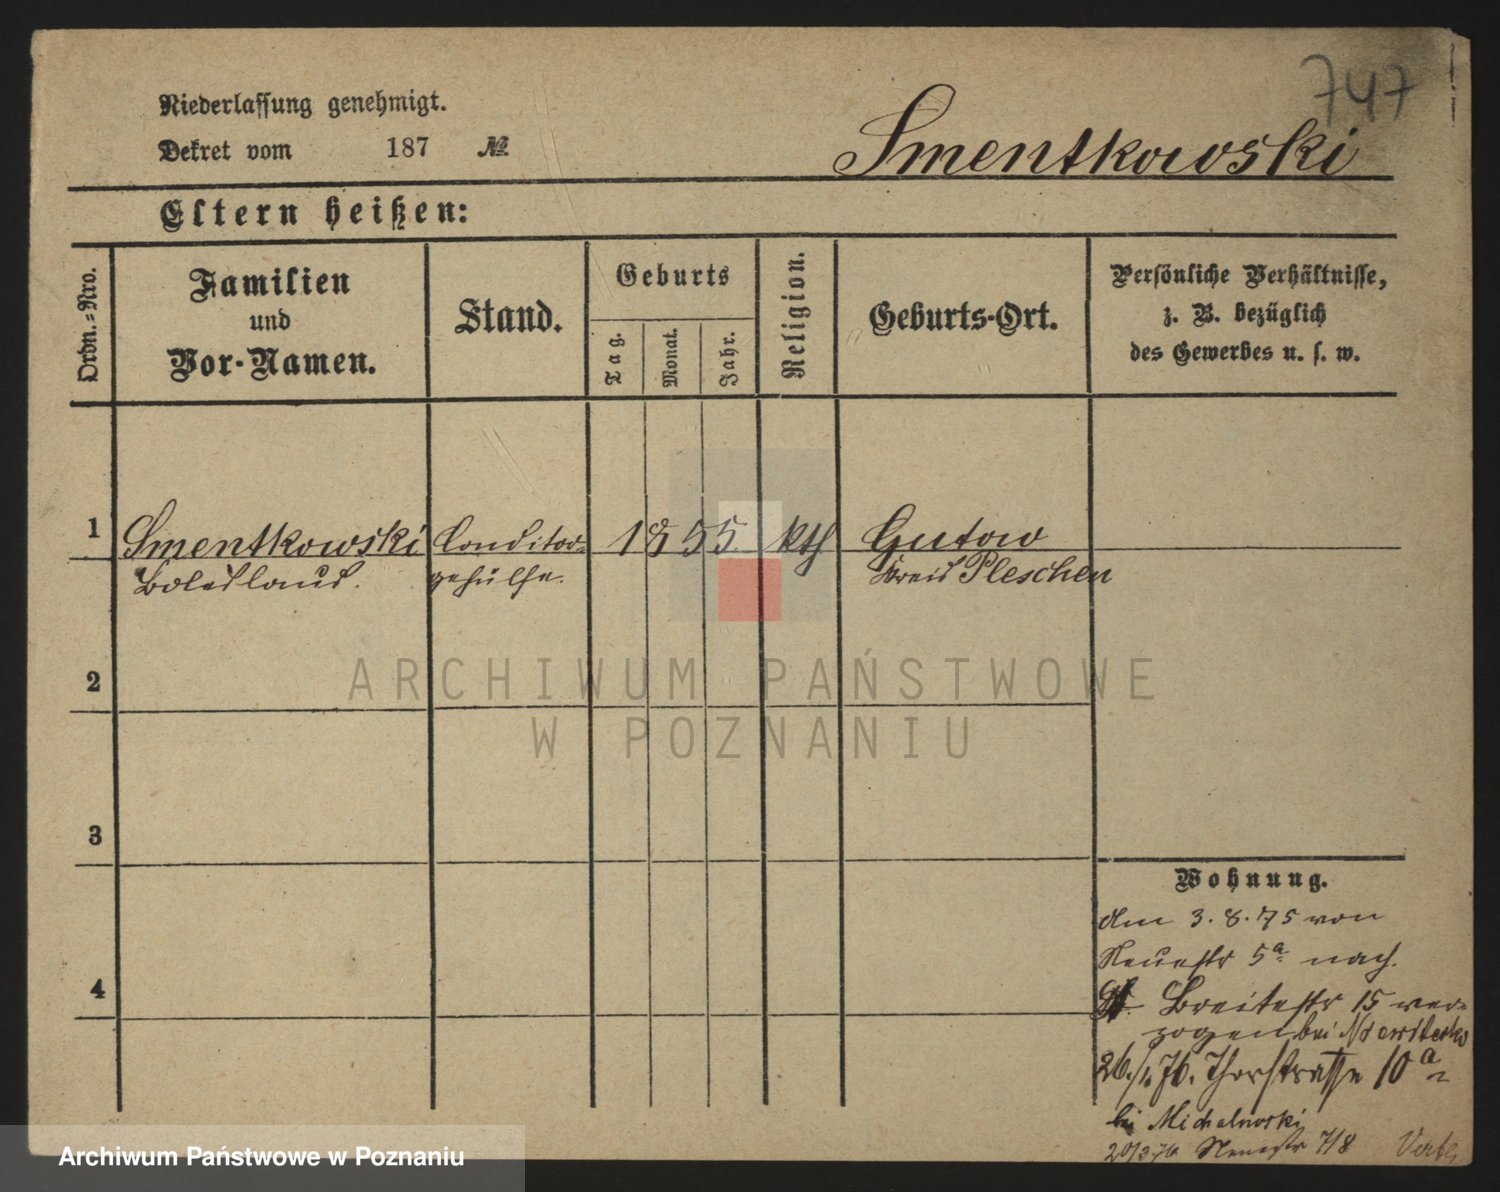 747
Niederlassung genehmigt.
Dekret vom 187 №
Smentkowski
Eltern heißen:
Ordn.-Nro.
Familien und Vor-Namen.
Stand.
Geburts
Tag.
Monat.
Jahr.
Religion.
Geburts-Ort.
Persönliche Verhältnisse,
z. B. bezüglich
des Gewerbes u. s. w.
1 Smentkowski Conditor- 1855 kth Gutow
Boleslaus. gehülfe. Kreis Pleschen
2
ARCHIWUM PAŃSTWOWE
W POZNANIU
3
Wohnung.
am 3.8.75 von
Neuestr 5a nach
4
Breitestr 15 ver-
zogen bei
26./1.76. Thorstrasse 10a
bei Michalowski
20/3 76 Neuestr 7/8
Archiwum Państwowe w Poznaniu